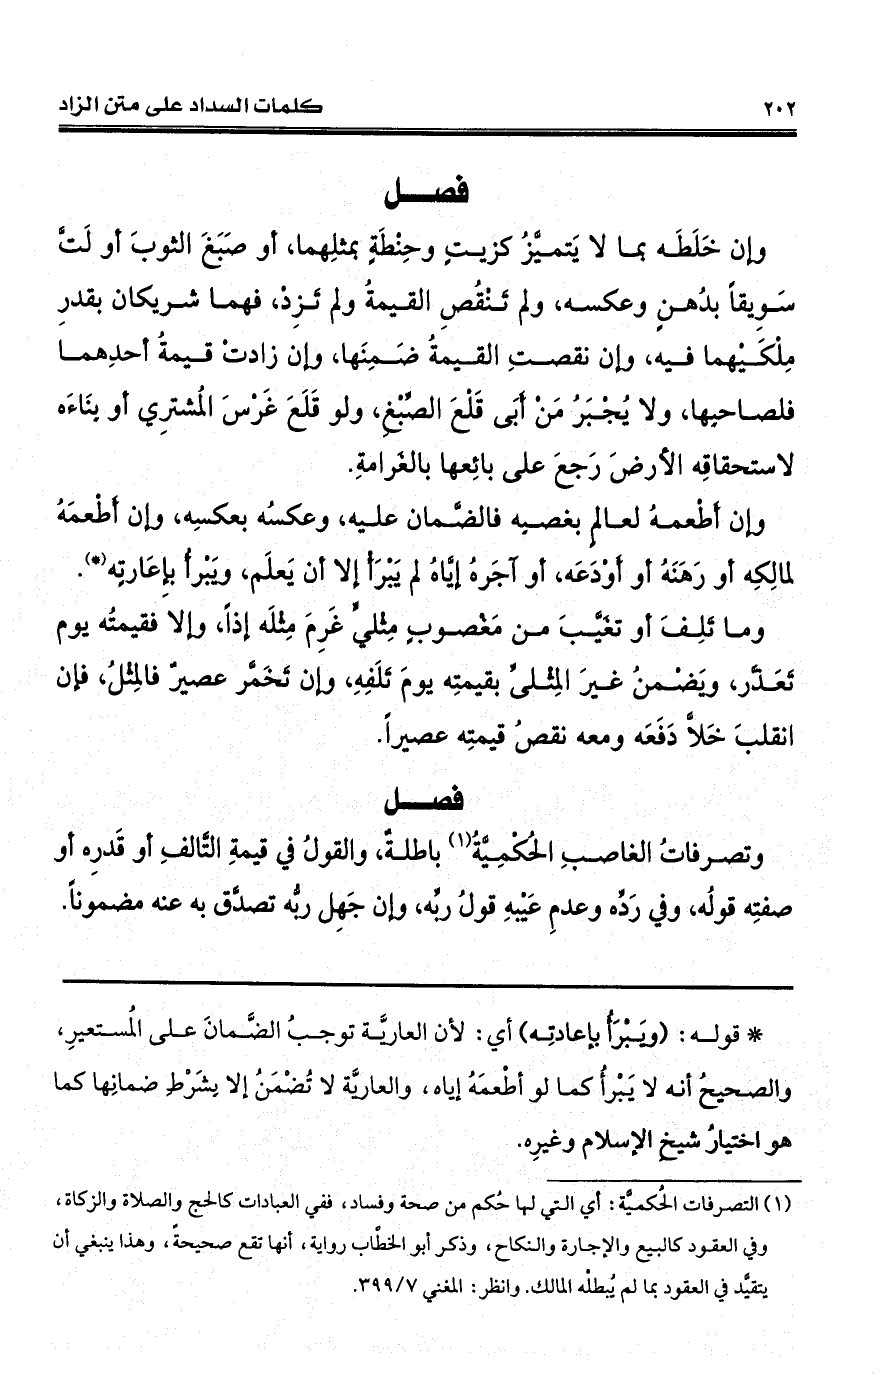 ٢٠٢ كلمات السداد على متن الزاد
فصـــل
وإن خَلَطَـه بمـا لا يَتميَّزُ كزيـتٍ وحِنْطَةٍ بمثلِهما، أو صَبَغَ الثوبَ أو لَتَّ
سَـويقاً بدُهـنٍ وعكسـه، ولم تَـنْقُصِ القـيمةُ ولم تَـزِدْ، فهمـا شـريكان بقدرِ
مِلْكَـيْهما فـيه، وإن نقصـتِ القـيمةُ ضَـمِنَها، وإن زادتْ قـيمةُ أحدِهمـا
فلصـاحبِها، ولا يُجْـبَرُ مَنْ أَبى قَلْعَ الصِّبْغِ، ولو قَلَعَ غَرْسَ المُشتري أو بِنَاءَه
لاستحقاقِه الأرضَ رَجعَ على بائِعها بالغَرامةِ.
وإن أطْعمـهُ لعـالمٍ بغصبِه فالضَّـمان علـيه، وعكسُه بعكسِه، وإن أطْعمَهُ
لمالِكِه أو رَهَنَهُ أو أوْدَعَه، أو آجَرهُ إيَّاهُ لم يَبْرَأْ إلا أن يَعلَم، ويَبْرأُ بإعَارتِه(*).
ومـا تَلِـفَ أو تغيَّـبَ مـن مَغْصـوبٍ مِثْليٍّ غَرِمَ مِثْلَه إذاً، وإلا فقيمتُه يوم
تَعَـذَّر، ويَضْـمنُ غـيرَ المِثْـليِّ بقيمتِه يومَ تَلَفِهِ، وإن تَخَمَّر عصيرٌ فالمِثْلُ، فإن
انقلبَ خَلاًّ دَفَعَه ومعه نقصُ قيمتِه عصيراً.
فصـــل
وتصـرفاتُ الغاصـبِ الحُكْمِيَّةُ(١) باطلـةٌ، والقولُ في قيمةِ التَّالفِ أو قَدرِه أو
صفتِه قولُه، وفي رَدِّه وعدمِ عَيْبِهِ قولُ ربِّه، وإن جَهِل ربُّه تصدَّق به عنه مضموناً.
* قولـه: (ويَـبْرَأُ بإعادتِـه) أي: لأن العاريَّـة توجـبُ الضَّـمانَ علـى المُسـتعيرِ،
والصـحيحُ أنـه لا يَبْرأُ كمـا لو أطْعمَهُ إياه، والعاريَّة لا تُضْمَنُ إلا بِشَرْطِ ضمانِها كما
هو اختيارُ شيخِ الإسلام وغيرِه.
(١) التصـرفات الحُكميَّة: أي التي لها حُكم من صحة وفساد، ففي العبادات كالحج والصلاة والزكاة،
وفي العقـود كالبيع والإجارة والنكاح، وذكر أبو الخطَّاب رواية، أنها تقع صحيحةً، وهذا ينبغي أن
يتقيَّد في العقود بما لم يُبطلْه المالك. وانظر: المغني ٣٩٩/٧.